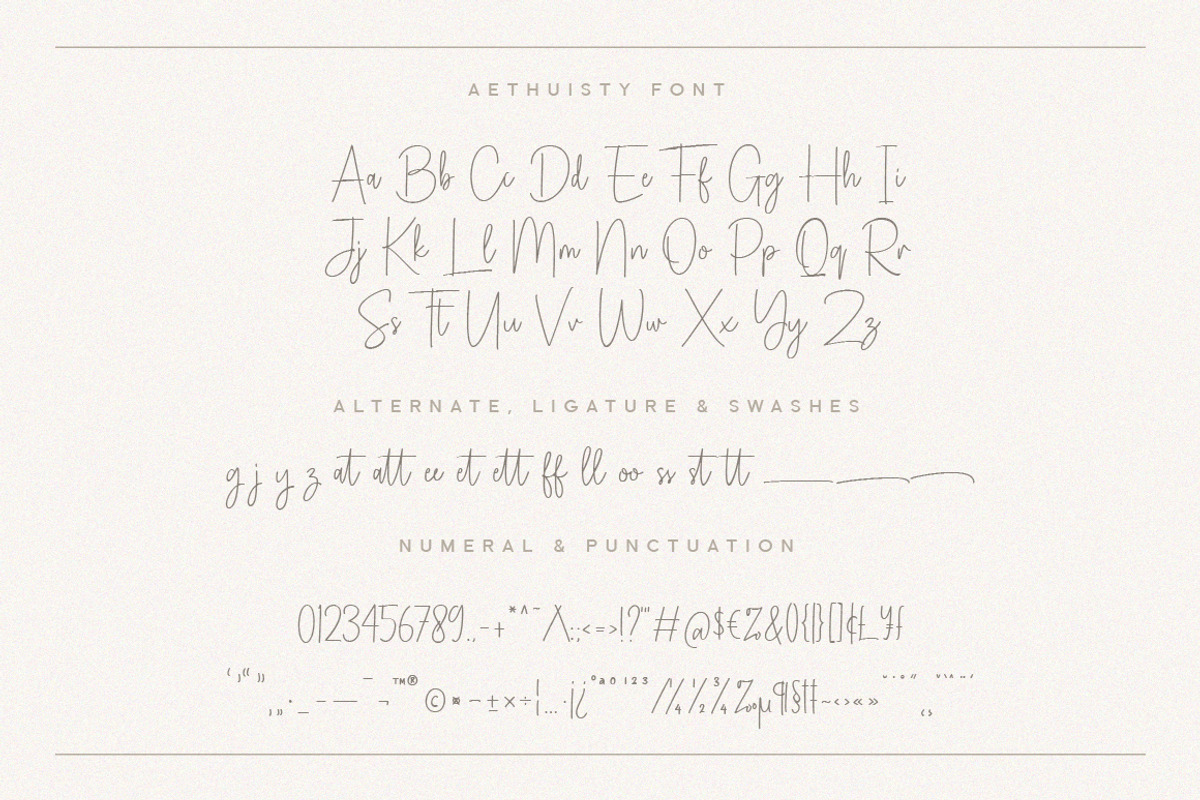 AETHUISTY FONT
Aa Bb Cc Dd Ee Ff Gg Hh Ii
Jj Kk Ll Mm Nn Oo Pp Qq Rr
Ss Tt Uu Vv Ww Xx Yy Zz
ALTERNATE, LIGATURE & SWASHES
g j y z at att ee et ett ff ll oo ss st tt
NUMERAL & PUNCTUATION
0123456789.,-+*^~/\:;<=>!?'"#@$€%&(){|}[]¢£¥ƒ
‚„·_–—¯¬™®©¤¬±×÷¦…·¡¿ºª0123⁄¼½¾‰µ¶§†‡~‹›«»